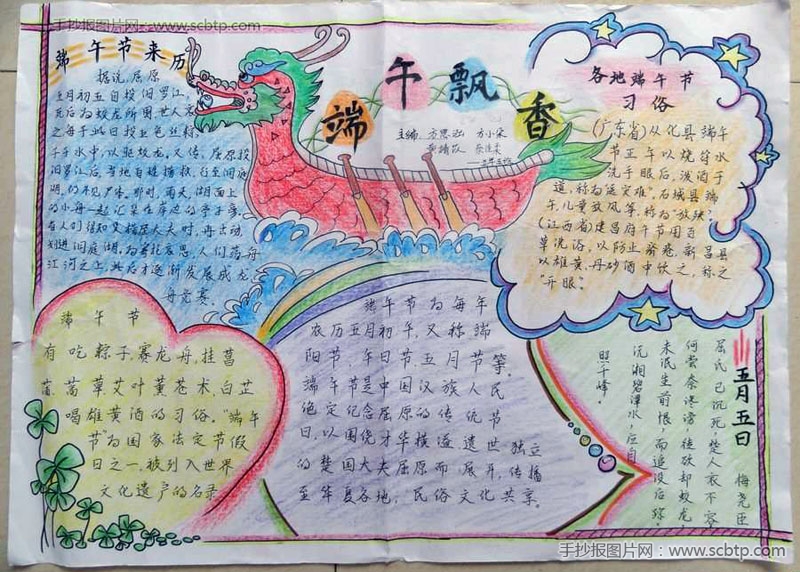 手抄报图片网 - www.scbtp.com
端午节来历
据说,屈原
五月初五自投汨罗江,
死后为蛟龙所困世人哀
之每于此日投五色丝粽
子于水中,以驱蛟龙,又传,屈原投
汨罗江后,当地百姓捕救,行至洞庭
湖,仍不见尸体,那时,雨天,湖面上
的小舟一起汇集在岸边的亭子旁,
当人们得知
大夫时,再出动
划进洞庭湖,为寄托哀思,人们荡舟
江河之上,此后才逐渐发展成龙
舟竞赛。
端午飘香
主编
各地端午节
习俗
(广东省)从化县端午
节正午以烧符水
洗手眼后,泼洒于
道,称为"送灾难"。石城县端
午,儿童放风筝,称为"放殃"。
(江西省)建昌府午节用百
草洗浴,以防止疥疮,新昌县
以雄黄、丹砂酒中饮之,称之
"开眼"。
端午节
有吃粽子,赛龙舟,挂菖
蒲、蒿草艾叶薰苍术,白芷
喝雄黄酒的习俗。"端午
节"为国家法定节假
日之一,被列入世界
文化遗产的名录。
端午节为每年
农历五月初午,又称端
阳节 午日节五月节等。
端午节是中国汉族人民
绝定纪念屈原的传统节
日,以围绕才华横溢遗世独立
的楚国大夫屈原而展开,传播
至华夏各地,民俗文化共享。
五月五日 梅尧臣
屈氏已沉死,楚人衣不容
何尝奈谗谤,徒欲却蛟龙
未泯生前恨,而追没后踪。
沅湘碧潭水,应自
照千峰。
手抄报图片网:www.scbtp.com